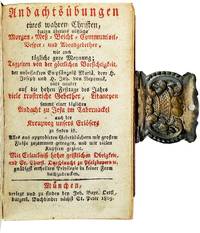 Andachtsübungen
eines wahren Christen,
Morgen- Meß- Beicht- Communion-
Vesper- und Abendgebether,
wie auch
tägliche gute Meynung;
Tagzeiten von der göttlichen Vorsichtigkeit,
der unbefleckten Empfängniß Mariä, dem H.
Joseph und H. Joh. von Nepomuk,
viele auf die hohen Festtage des Jahrs
trostreiche Gebether, Litaneyen
sammt einer täglichen
Andacht zu Jesu im Tabernackel
auch der
Kreuzweg unsers Erlösers
zu finden ist.
Alles aus approbirten Gebethbüchern mit großem
Fleiße zusammen getragen, und mit vielen
Kupfern geziert.
Mit Erlaubniß hoher geistlichen Obrigkeit,
und Sr. Churf. Durchlaucht zu Pfalzbayern ꝛc.
gnädigst ertheilten Privilegio in keiner Form
nachzudrucken.
München,
verlegt und zu finden bey Joh. Bapt. Oettl,
bürgerl. Buchbinder nächst St. Peter 1803.